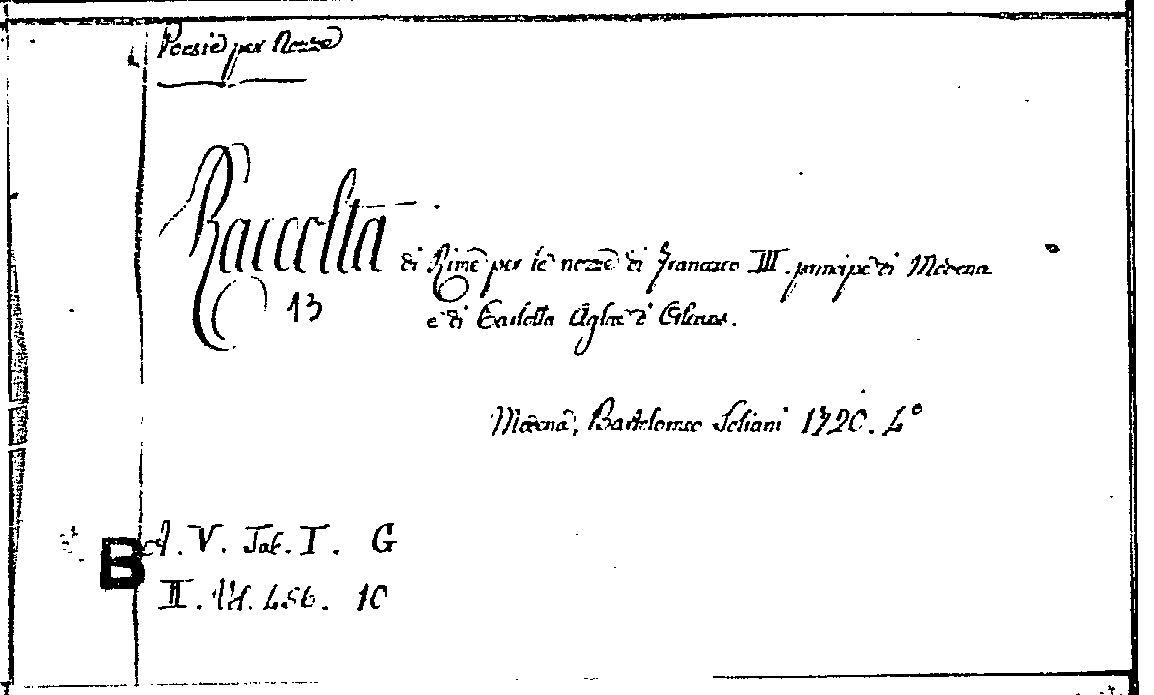 Poesie per Nozze
Raccolta di Rime per le nozze di Francesco III. principe di Modena
13
e di Carlotta Aglae d'Orleans.
Modena, Bartolomeo Soliani 1720. 4°
A. V. Tab. I. G
B
II. N. 456. 10